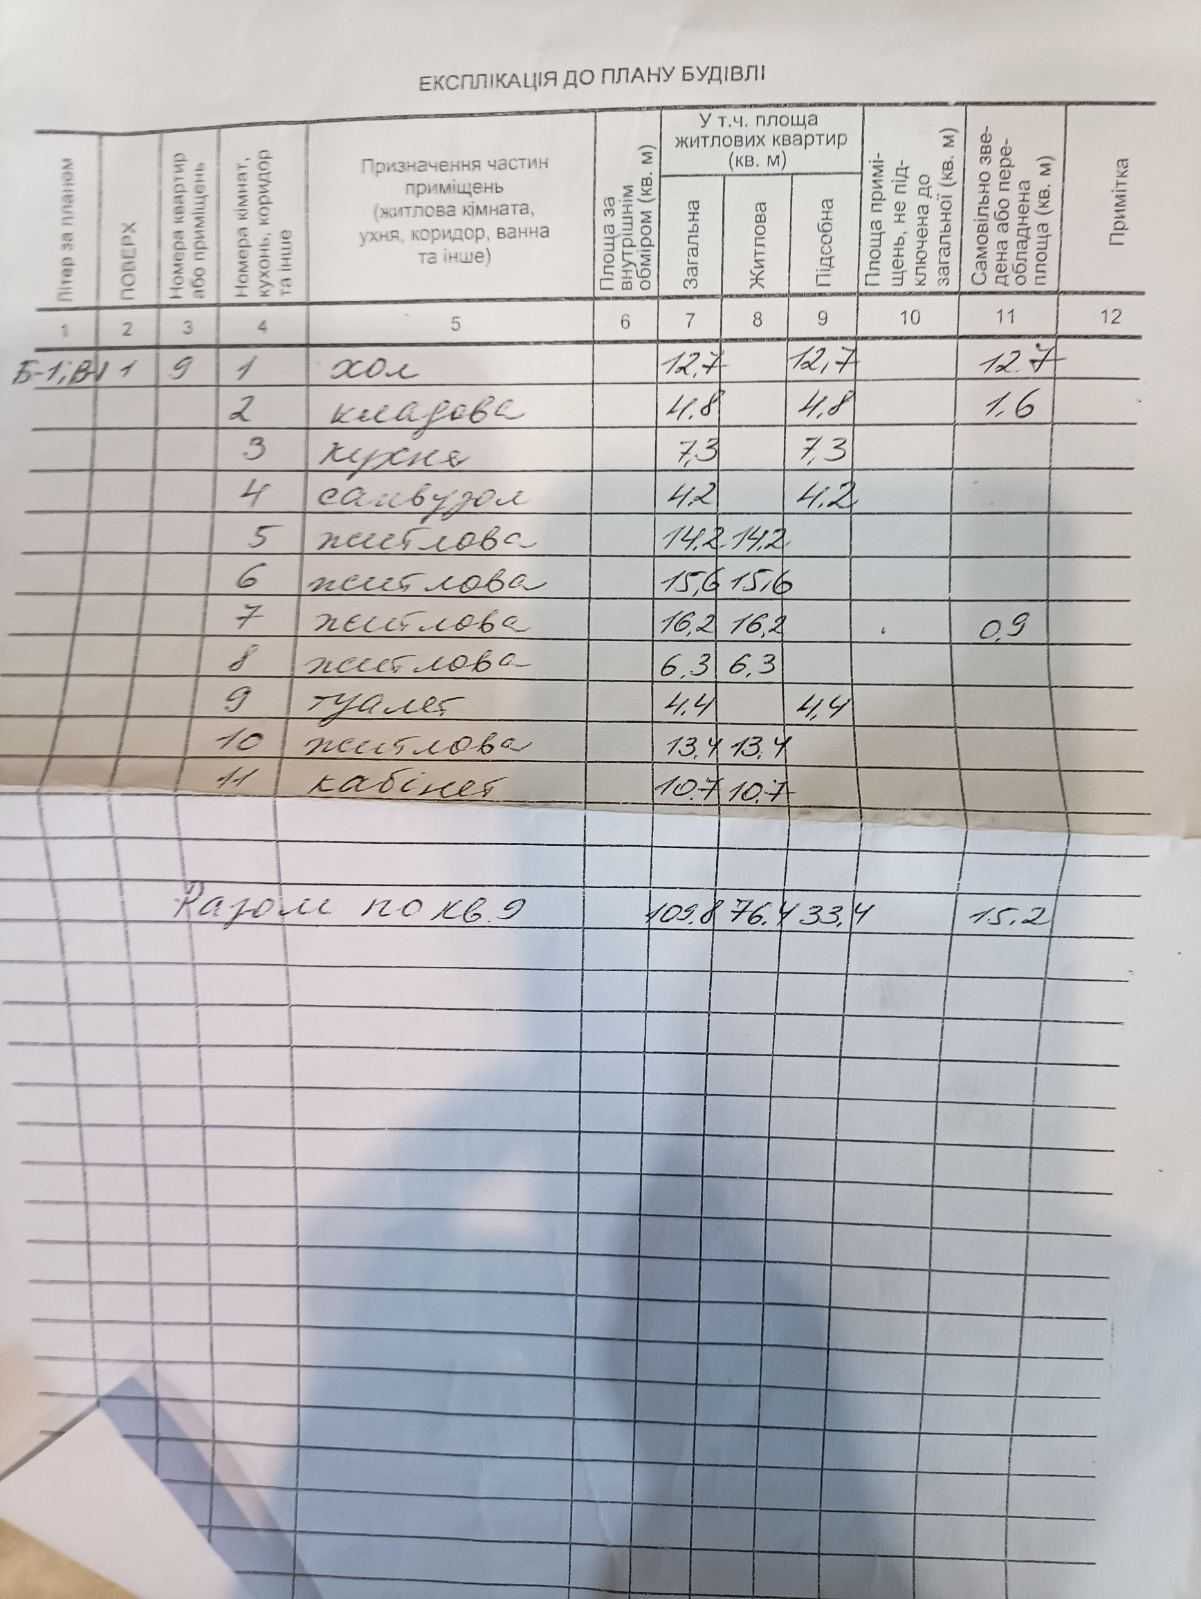 ЕКСПЛІКАЦІЯ ДО ПЛАНУ БУДІВЛІ
Літер за планом
ПОВЕРХ
Номера квартир або приміщень
Номера кімнат, кухонь, коридор та інше
Призначення частин
приміщень
(житлова кімната,
ухня, коридор, ванна
та інше)
Площа за внутрішнім обміром (кв. м)
У т.ч. площа
житлових квартир
(кв. м)
Загальна
Житлова
Підсобна
Площа примі-
щень, не під-
ключена до
загальної (кв. м)
Самовільно зве-
дена або пере-
обладнена
площа (кв. м)
Примітка
1 2 3 4 5 6 7 8 9 10 11 12
Б-1, В-1 1 9 1 хол 12,7 12,7 12.7
2 кладова 4.8 4.8 1,6
3 кухня 7,3 7,3
4 санвузол 4.2 4.2
5 житлова 14,2 14,2
6 житлова 15,6 15,6
7 житлова 16,2 16,2 0,9
8 житлова 6,3 6,3
9 туалет 4.4 4,4
10 житлова 13,4 13,4
11 кабінет 10.7 10.7
Разом по кв. 9 109.8 76.4 33,4 15.2